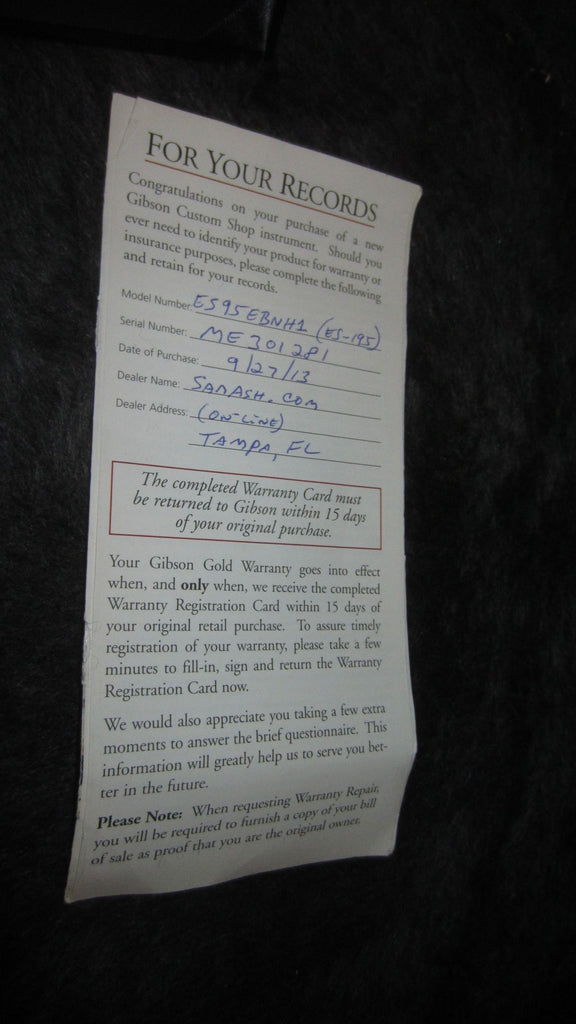 FOR YOUR RECORDS
Congratulations on your purchase of a new
Gibson Custom Shop instrument. Should you
ever need to identify your product for warranty or
insurance purposes, please complete the following
and retain for your records.
Model Number: ES95EBNH1 (ES-195)
Serial Number: ME301281
Date of Purchase: 9/27/13
Dealer Name: SAMASH.COM
Dealer Address: (ON-LINE)
TAMPA, FL
The completed Warranty Card must
be returned to Gibson within 15 days
of your original purchase.
Your Gibson Gold Warranty goes into effect
when, and only when, we receive the completed
Warranty Registration Card within 15 days of
your original retail purchase. To assure timely
registration of your warranty, please take a few
minutes to fill-in, sign and return the Warranty
Registration Card now.
We would also appreciate you taking a few extra
moments to answer the brief questionnaire. This
information will greatly help us to serve you bet-
ter in the future.
Please Note: When requesting Warranty Repair,
you will be required to furnish a copy of your bill
of sale as proof that you are the original owner.